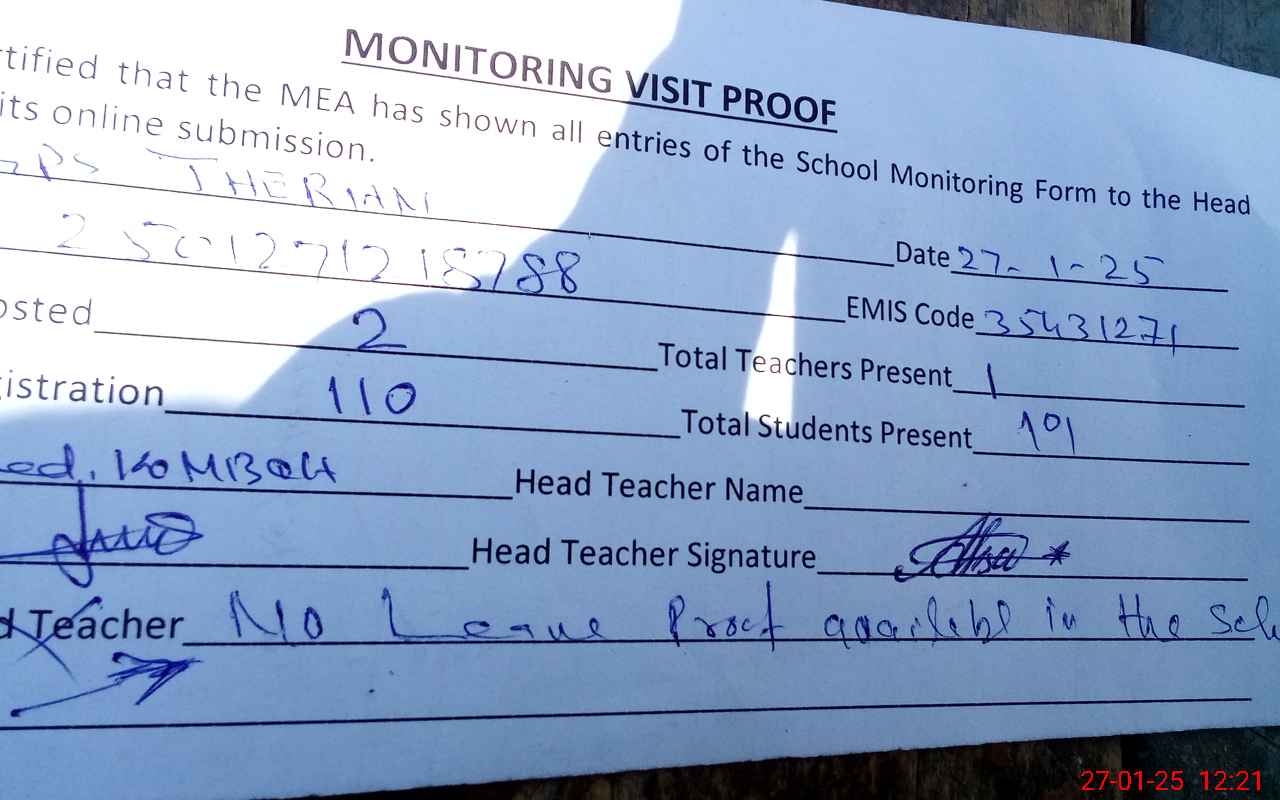 MONITORING VISIT PROOF
rtified that the MEA has shown all entries of the School Monitoring Form to the Head
its online submission.
GPS THERIAN Date 27-1-25
EMIS Code 35431271
osted 2 Total Teachers Present 1
istration 110 Total Students Present 101
ed. KOMBOH Head Teacher Name
Head Teacher Signature
d Teacher No Leave Proof available in the Sch
27-01-25 12:21